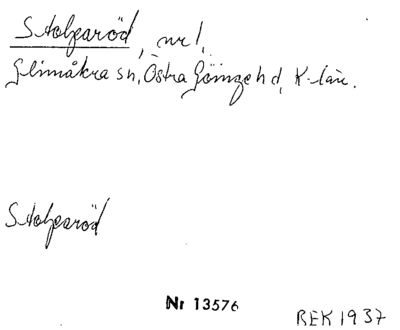 Stolparöd, nr 1,
Glimåkra sn, Östra Göinge hd, K-län.
Stolparöd
Nr 13576
BEK 1937